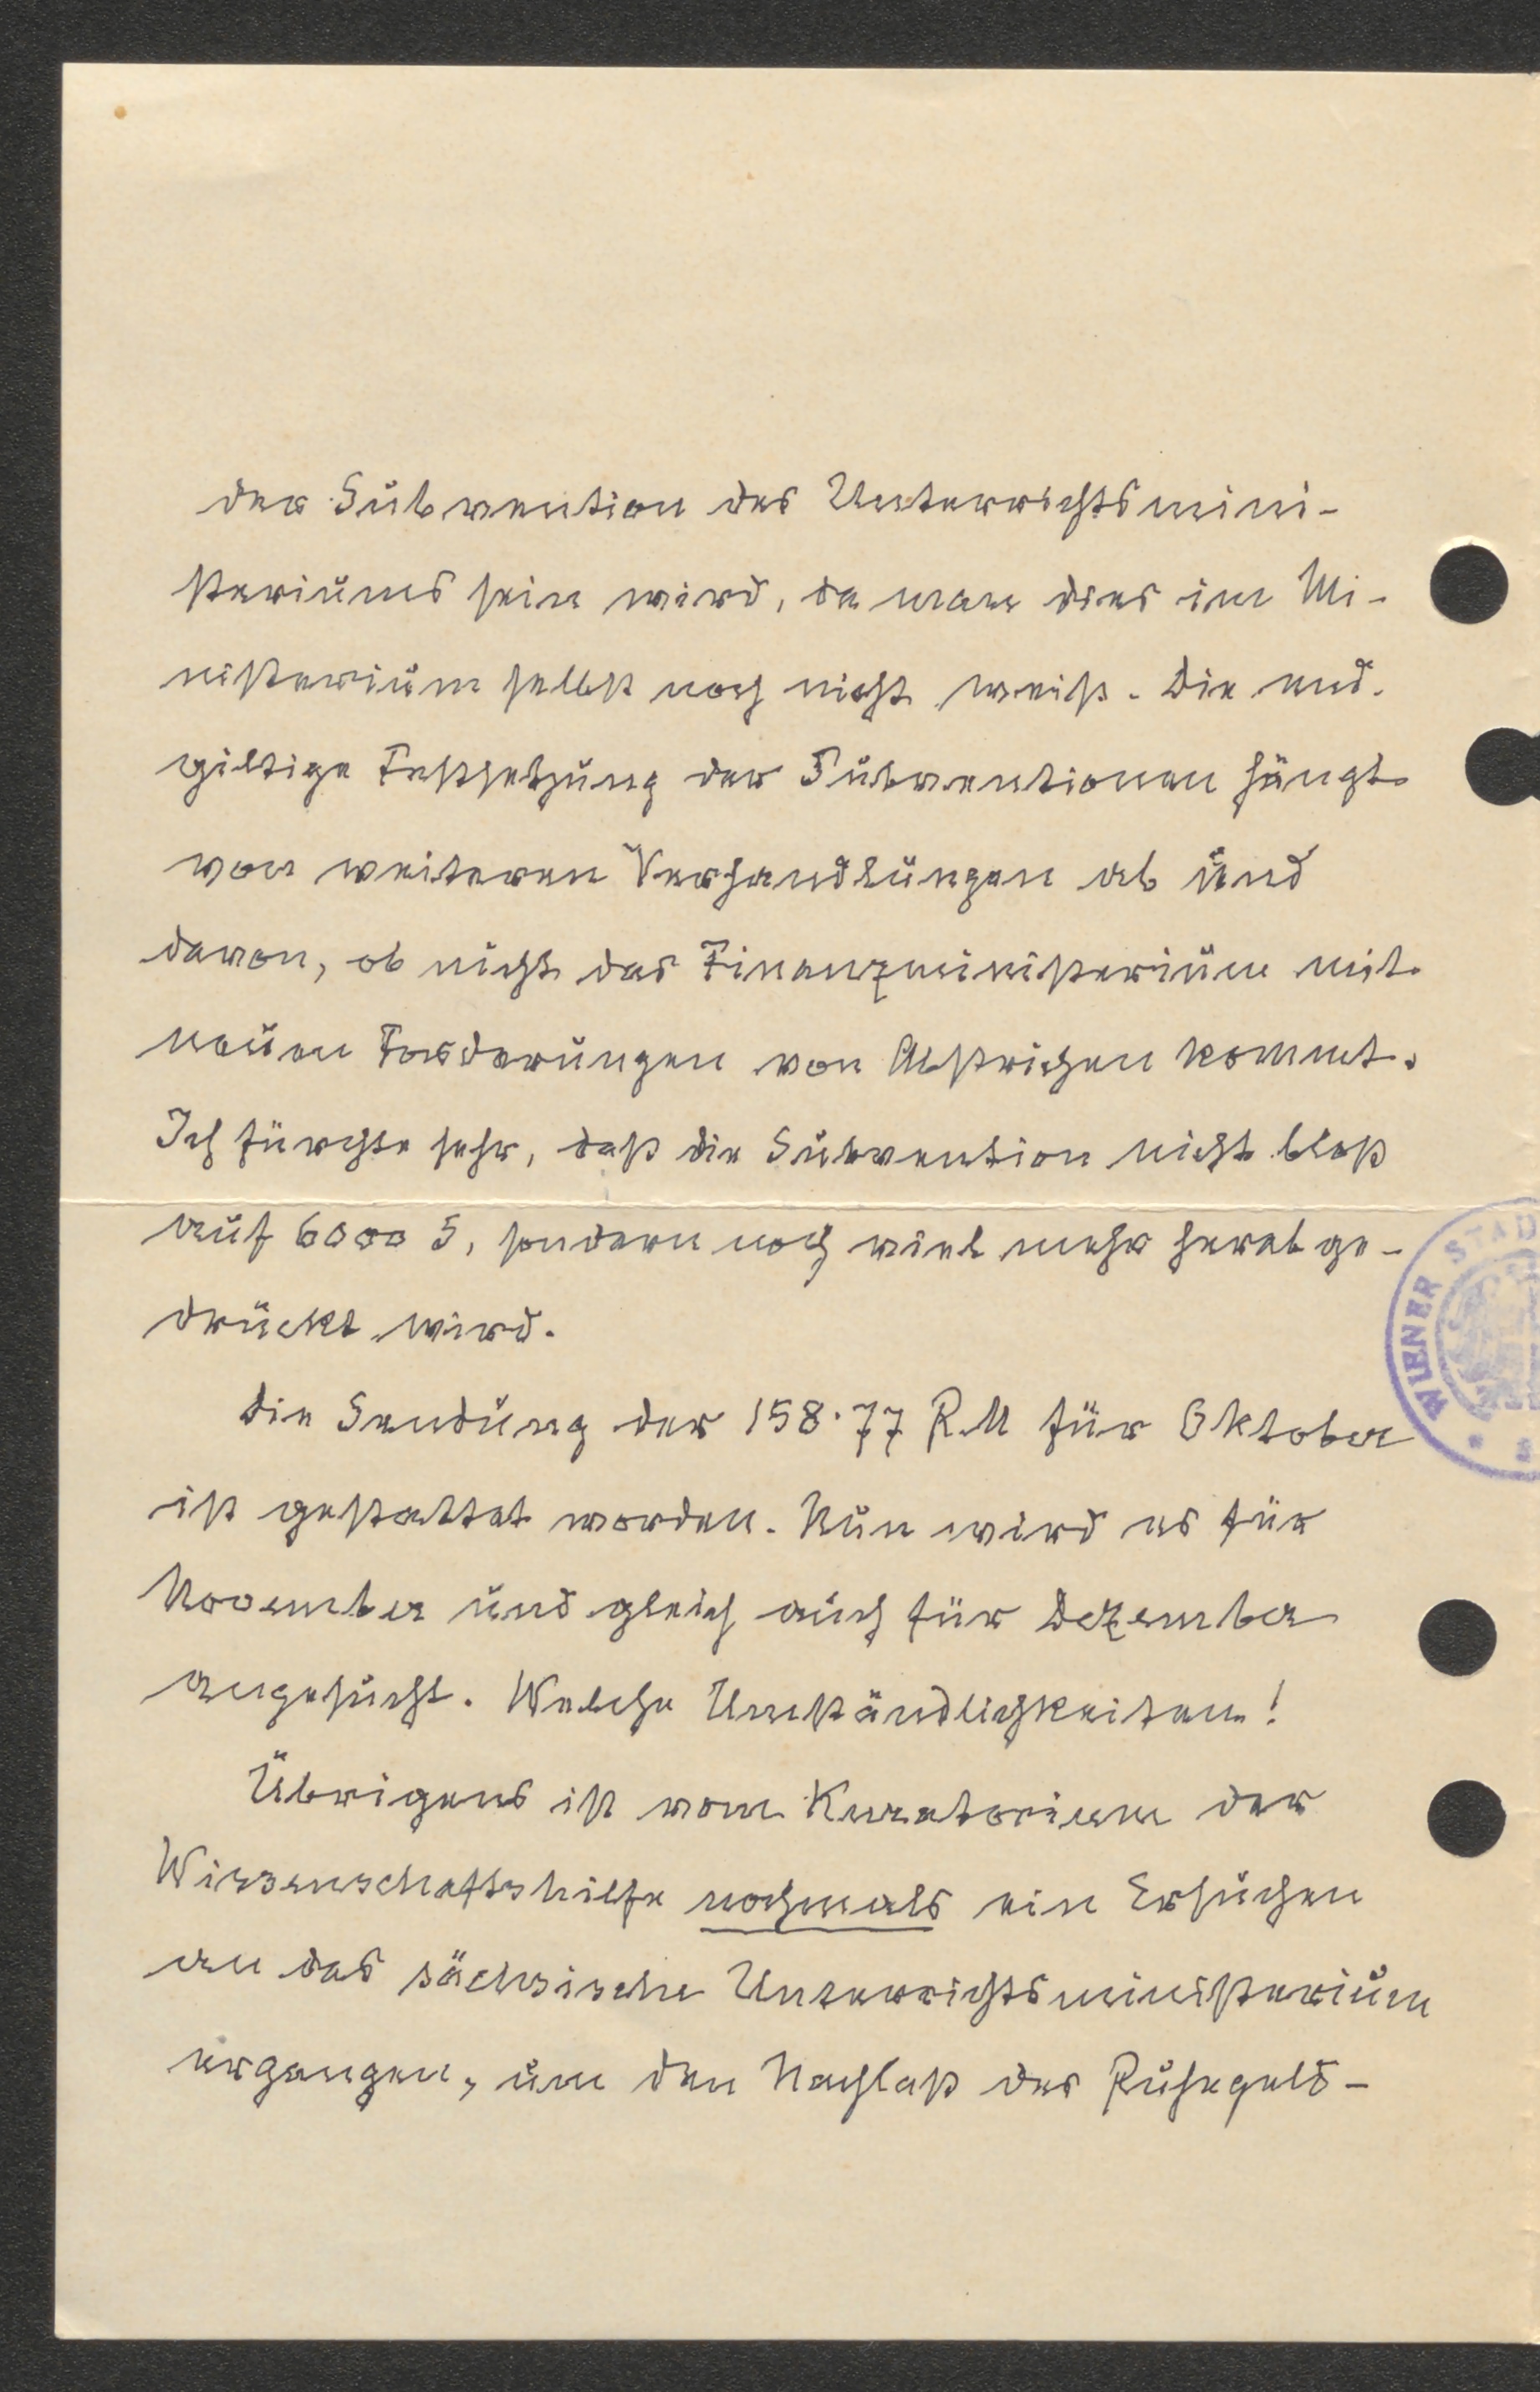 der Subvention des Unterrichtsmini-
steriums sein wird, da man dies im Mi-
nisterium selbst noch nicht weiß. Die end-
giltige Festsetzung der Subventionen hängt
von weiteren Verhandlungen ab und
davon, ob nicht das Finanzministerium mit
neuen Forderungen von Abstrichen kommt.
Ich fürchte sehr, daß die Subvention nicht bloß
auf 6000 S, sondern noch viel mehr herabge-
drückt wird.
Die Sendung der 158·77 RM für Oktober
ist gestattet worden. Nun wird es für
November und gleich auch für Dezember
angesucht. Welche Umständlichkeiten!
Übrigens ist vom Kuratorium der
Wissenschaftshilfe nochmals ein Ersuchen
an das sächsische Unterrichtsministerium
ergangen, um den Nachlaß des Ruhegeld-
WIENER STAD